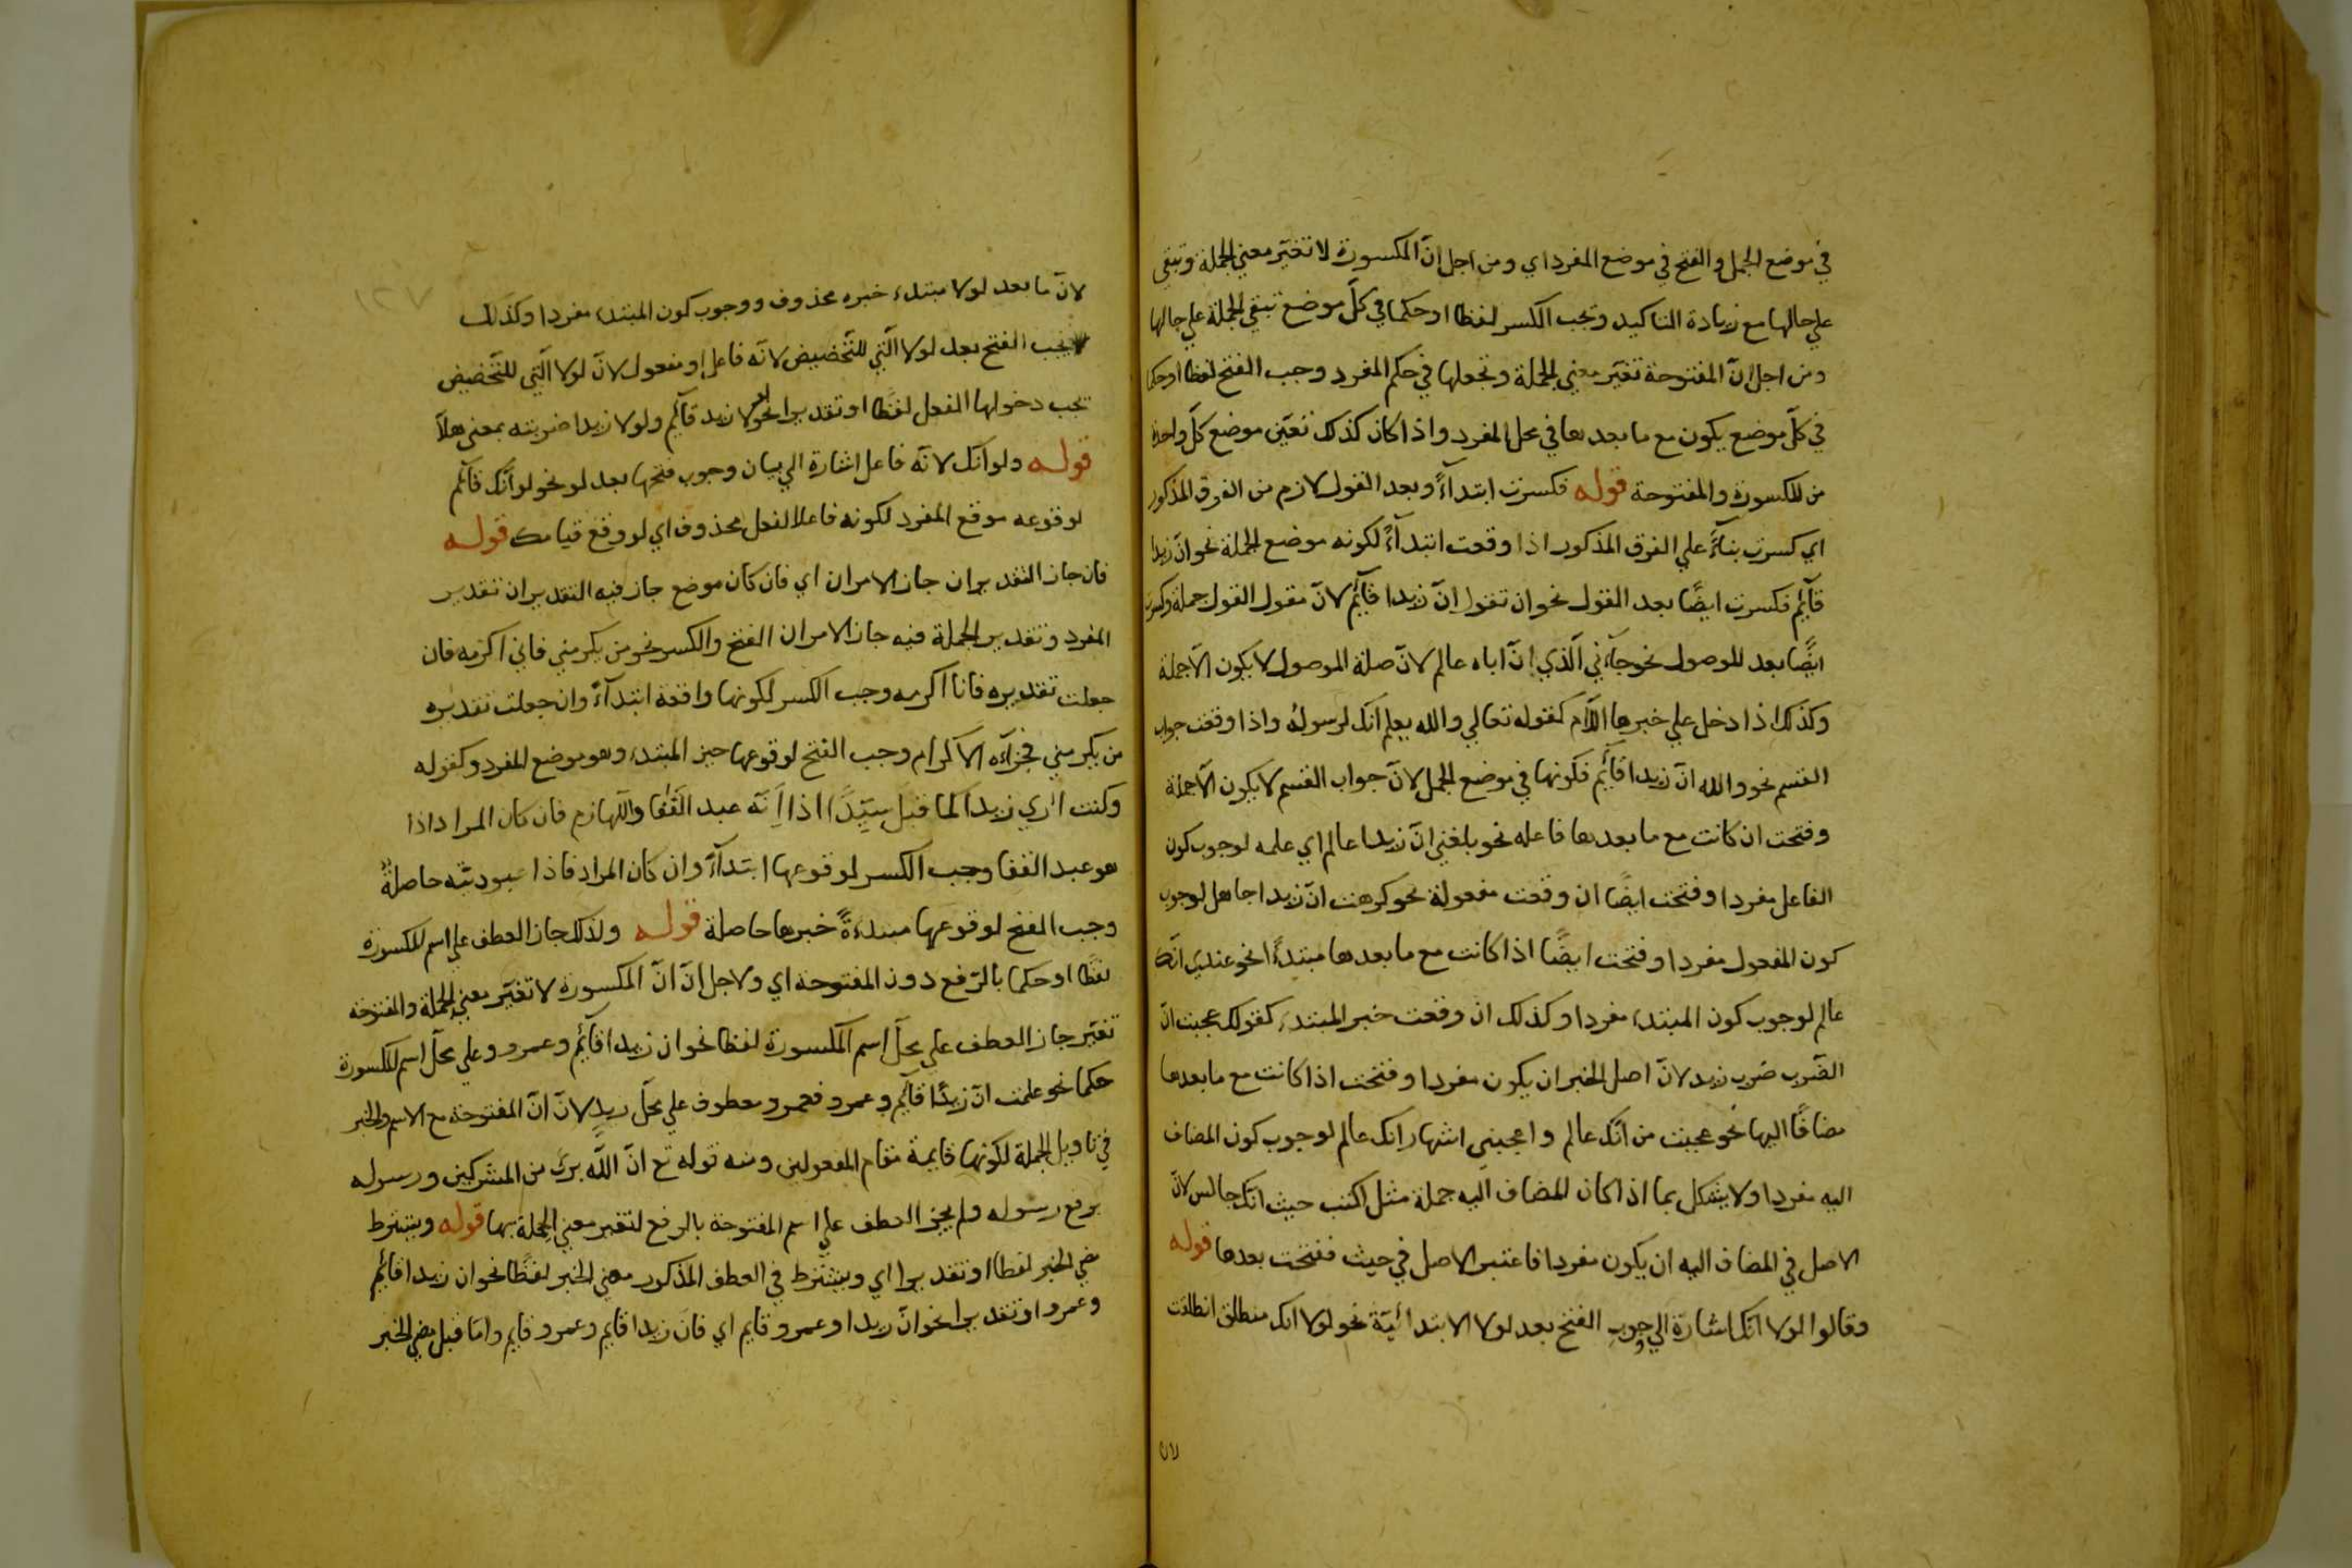 في موضع الجمل والفتح في موضع المفرد اي ومن اجل انّ المكسورة لا تغيّر معني الجملة وتبقي
علي حالها مع زيادة التاكيد وتجب الكسر لفظا او حكما في كلّ موضع تبقي الجملة علي حالها
ومن اجل انّ المفتوحة تغيّر معني الجملة وتجعلها في حكم المفرد وجب الفتح لفظا او حكما
في كلّ موضع يكون مع ما بعدها في محل المفرد واذا كان كذلك تعيّن موضع كلّ واحدة
من المكسورة والمفتوحة قوله فكسرت ابتدآءً وبعد القول لازم من الفرق المذكور
اي كسرت بنآءً علي الفرق المذكور اذا وقعت ابتدآءً لكونه موضع الجملة نحو انّ زيدا
قآئم فكسرت ايضًا بعد القول نحو ان تقول انّ زيدا قآئم لانّ مقول القول جملة وكسرت
ايضًا بعد الموصول نحو جآءني الّذي انّ اباه عالم لانّ صلة الموصول لا يكون الّا جملة
وكذلك اذا دخل علي خبرها اللّام كقوله تعالي والله يعلم انّك لرسوله واذا وقعت جواب
القسم نحو والله انّ زيدا قآئم فكونها في موضع الجمل لانّ جواب القسم لا يكون الّا جملة
وفتحت ان كانت مع ما بعدها فاعله نحو بلغني انّ زيدا عالم اي علمه لوجوب كون
الفاعل مفردا وفتحت ايضًا ان وقعت مفعولة نحو كرهت انّ زيدا جاهل لوجوب
كون المفعول مفردا وفتحت ايضًا اذا كانت مع ما بعدها مبتدءًا نحو عندي انّك
عالم لوجوب كون المبتدء مفردا وكذلك ان وقعت خبر المبتدء كقولك عجبت انّ
الضّرب ضرب زيد لانّ اصل الخبر ان يكون مفردا وفتحت اذا كانت مع ما بعدها
مضافًا اليها نحو عجبت من انّك عالم واعجبني اشتهار انّك عالم لوجوب كون المضاف
اليه مفردا ولا يشكل بما اذا كان المضاف اليه جملة مثل اكتب حيث انّك جالس لانّ
الاصل في المضاف اليه ان يكون مفردا فاعتبر الاصل في حيث ففتحت بعدها قوله
وقالوا لولا انّك اشارة الي وجوب الفتح بعد لولا الابتدائيّة نحو لولا انك منطلق انطلقت
لان
١٢٧
لانّ ما بعد لولا مبتدء خبره محذوف ووجوب كون المبتدء مفردا وكذلك
يجب الفتح بعد لولا الّتي للتّحضيض لانّه فاعل او مفعول لانّ لولا الّتي للتّحضيض
تجب دخولها الفعل لفظا او تقديرا نحو لولا زيد قآئم ولولا زيدا ضربته بمعني هلّا
قوله ولو انّك لانّه فاعل اشارة الي بيان وجوب فتحها بعد لو نحو لو انّك قآئم
لوقوعه موقع المفرد لكونه فاعلا لفعل محذوف اي لو وقع قيامك قوله
فان جاز التقديران جاز الامران اي فان كان موضع جاز فيه التقديران تقدير
المفرد وتقدير الجملة فيه جاز الامران الفتح والكسر نحو من يكرمني فاني اكرمه فان
جعلت تقديره فانا اكرمه وجب الكسر لكونها واقعة ابتدآءً وان جعلت تقديره
من يكرمني فجزآءه الاكرام وجب الفتح لوقوعها حيز المبتدء وهو موضع المفرد وكقوله
وكنت اري زيدا كما قيل سيّدًا اذا انّه عبد القفا واللّهازم فان كان المراد اذا
هو عبد القفا وجب الكسر لوقوعها ابتدآءً وان كان المراد فاذا عبوديّته حاصلةٌ
وجب الفتح لوقوعها مبتدءةً خبرها حاصلة قوله ولذلك جاز العطف علي اسم المكسورة
لفظا او حكما بالرّفع دون المفتوحة اي ولاجل انّ انّ المكسورة لا تغيّر معني الجملة والمفتوحة
تغيّر جاز العطف علي محلّ اسم المكسورة لفظا نحو ان زيدا قآئم وعمرو وعلي محلّ اسم المكسورة
حكما نحو علمت انّ زيدًا قآئم وعمرو فعمرو معطوف علي محلّ زيد لانّ انّ المفتوحة مع الاسم والخبر
في تاويل الجملة لكونها قايمة مقام المفعولين ومنه قوله تع انّ اللّٰه برئ من المشركين ورسوله
برفع رسوله ولم يجز العطف علي اسم المفتوحة بالرفع لتغير معني الجملة بها قوله ويشترط
مضي الخبر لفظا او تقديرا اي ويشترط في العطف المذكور مضي الخبر لفظًا نحو ان زيدا قآئم
وعمرو او تقديرا نحو انّ زيدا وعمرو قايم اي فانّ زيدا قايم وعمرو قايم وامّا قبل مضي الخبر